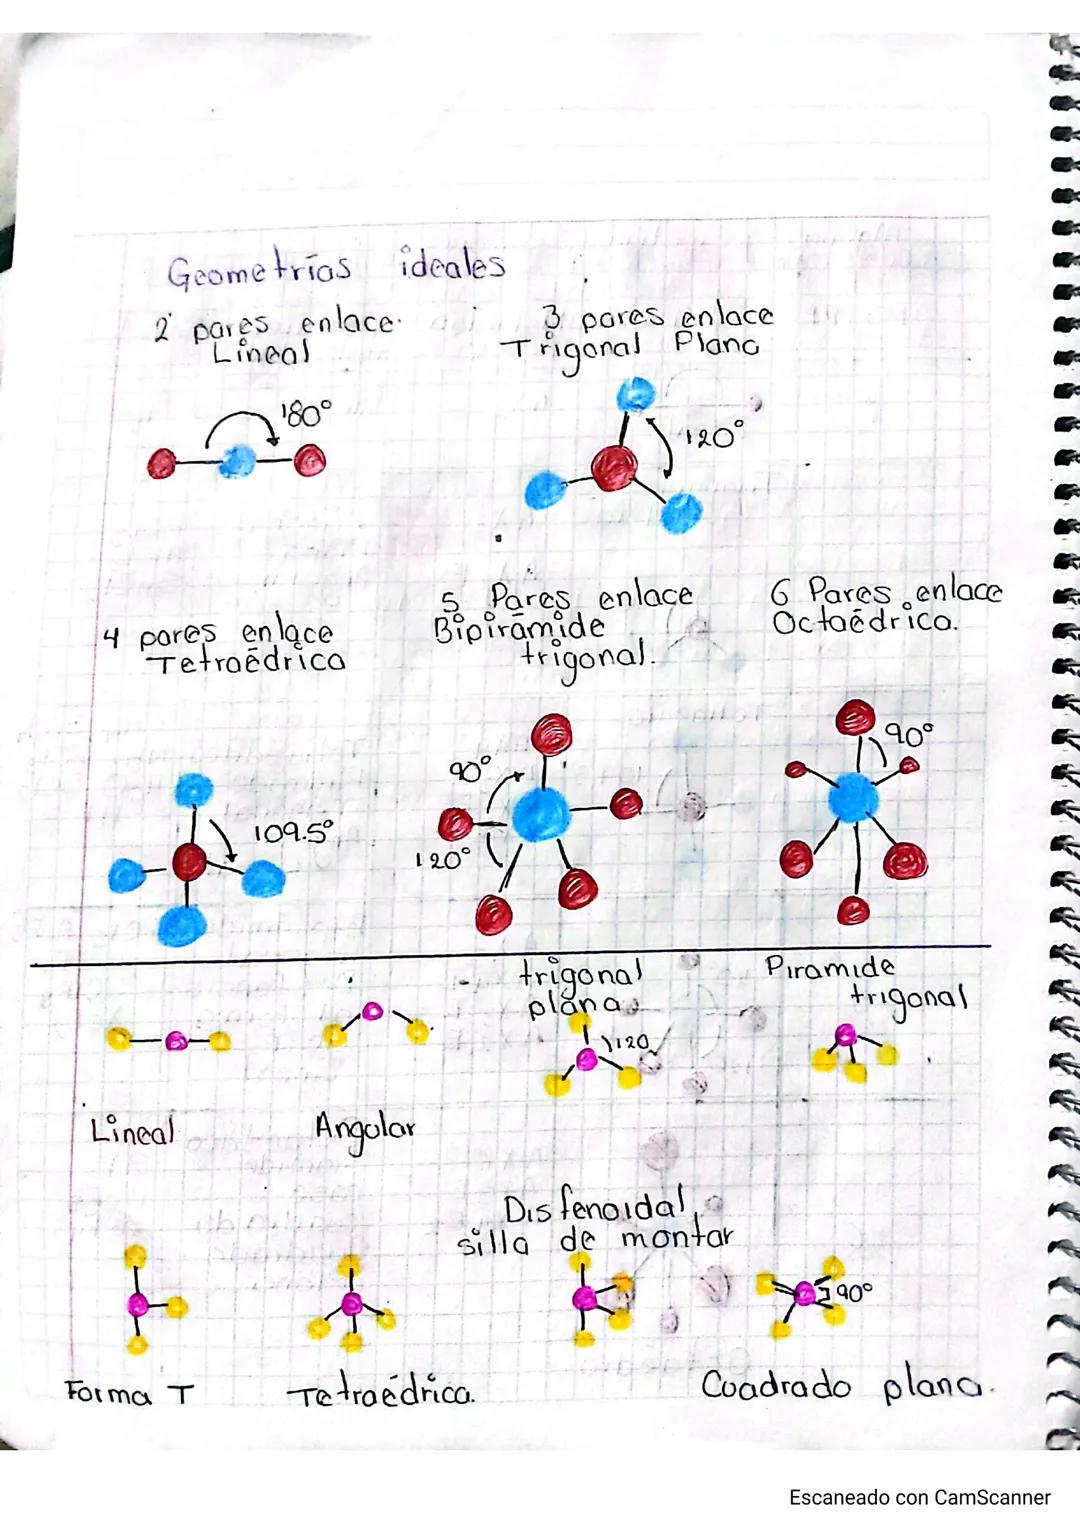 Geometrías ideales
2 pares enlace
Lineal
3 pares enlace
Trigonal Plana
180°
120°
4 pares enlace
Tetraédrica
5 Pares enlace
Bipirámide
trigonal.
6 Pares enlace
Octaédrica.
109.5°
90°
120°
90°
Lineal
Angular
trigonal
plana
120
Piramide
trigonal
Forma T
Tetraédrica.
Disfenoidal,
silla de montar
90°
Cuadrado plana.
Escaneado con CamScanner